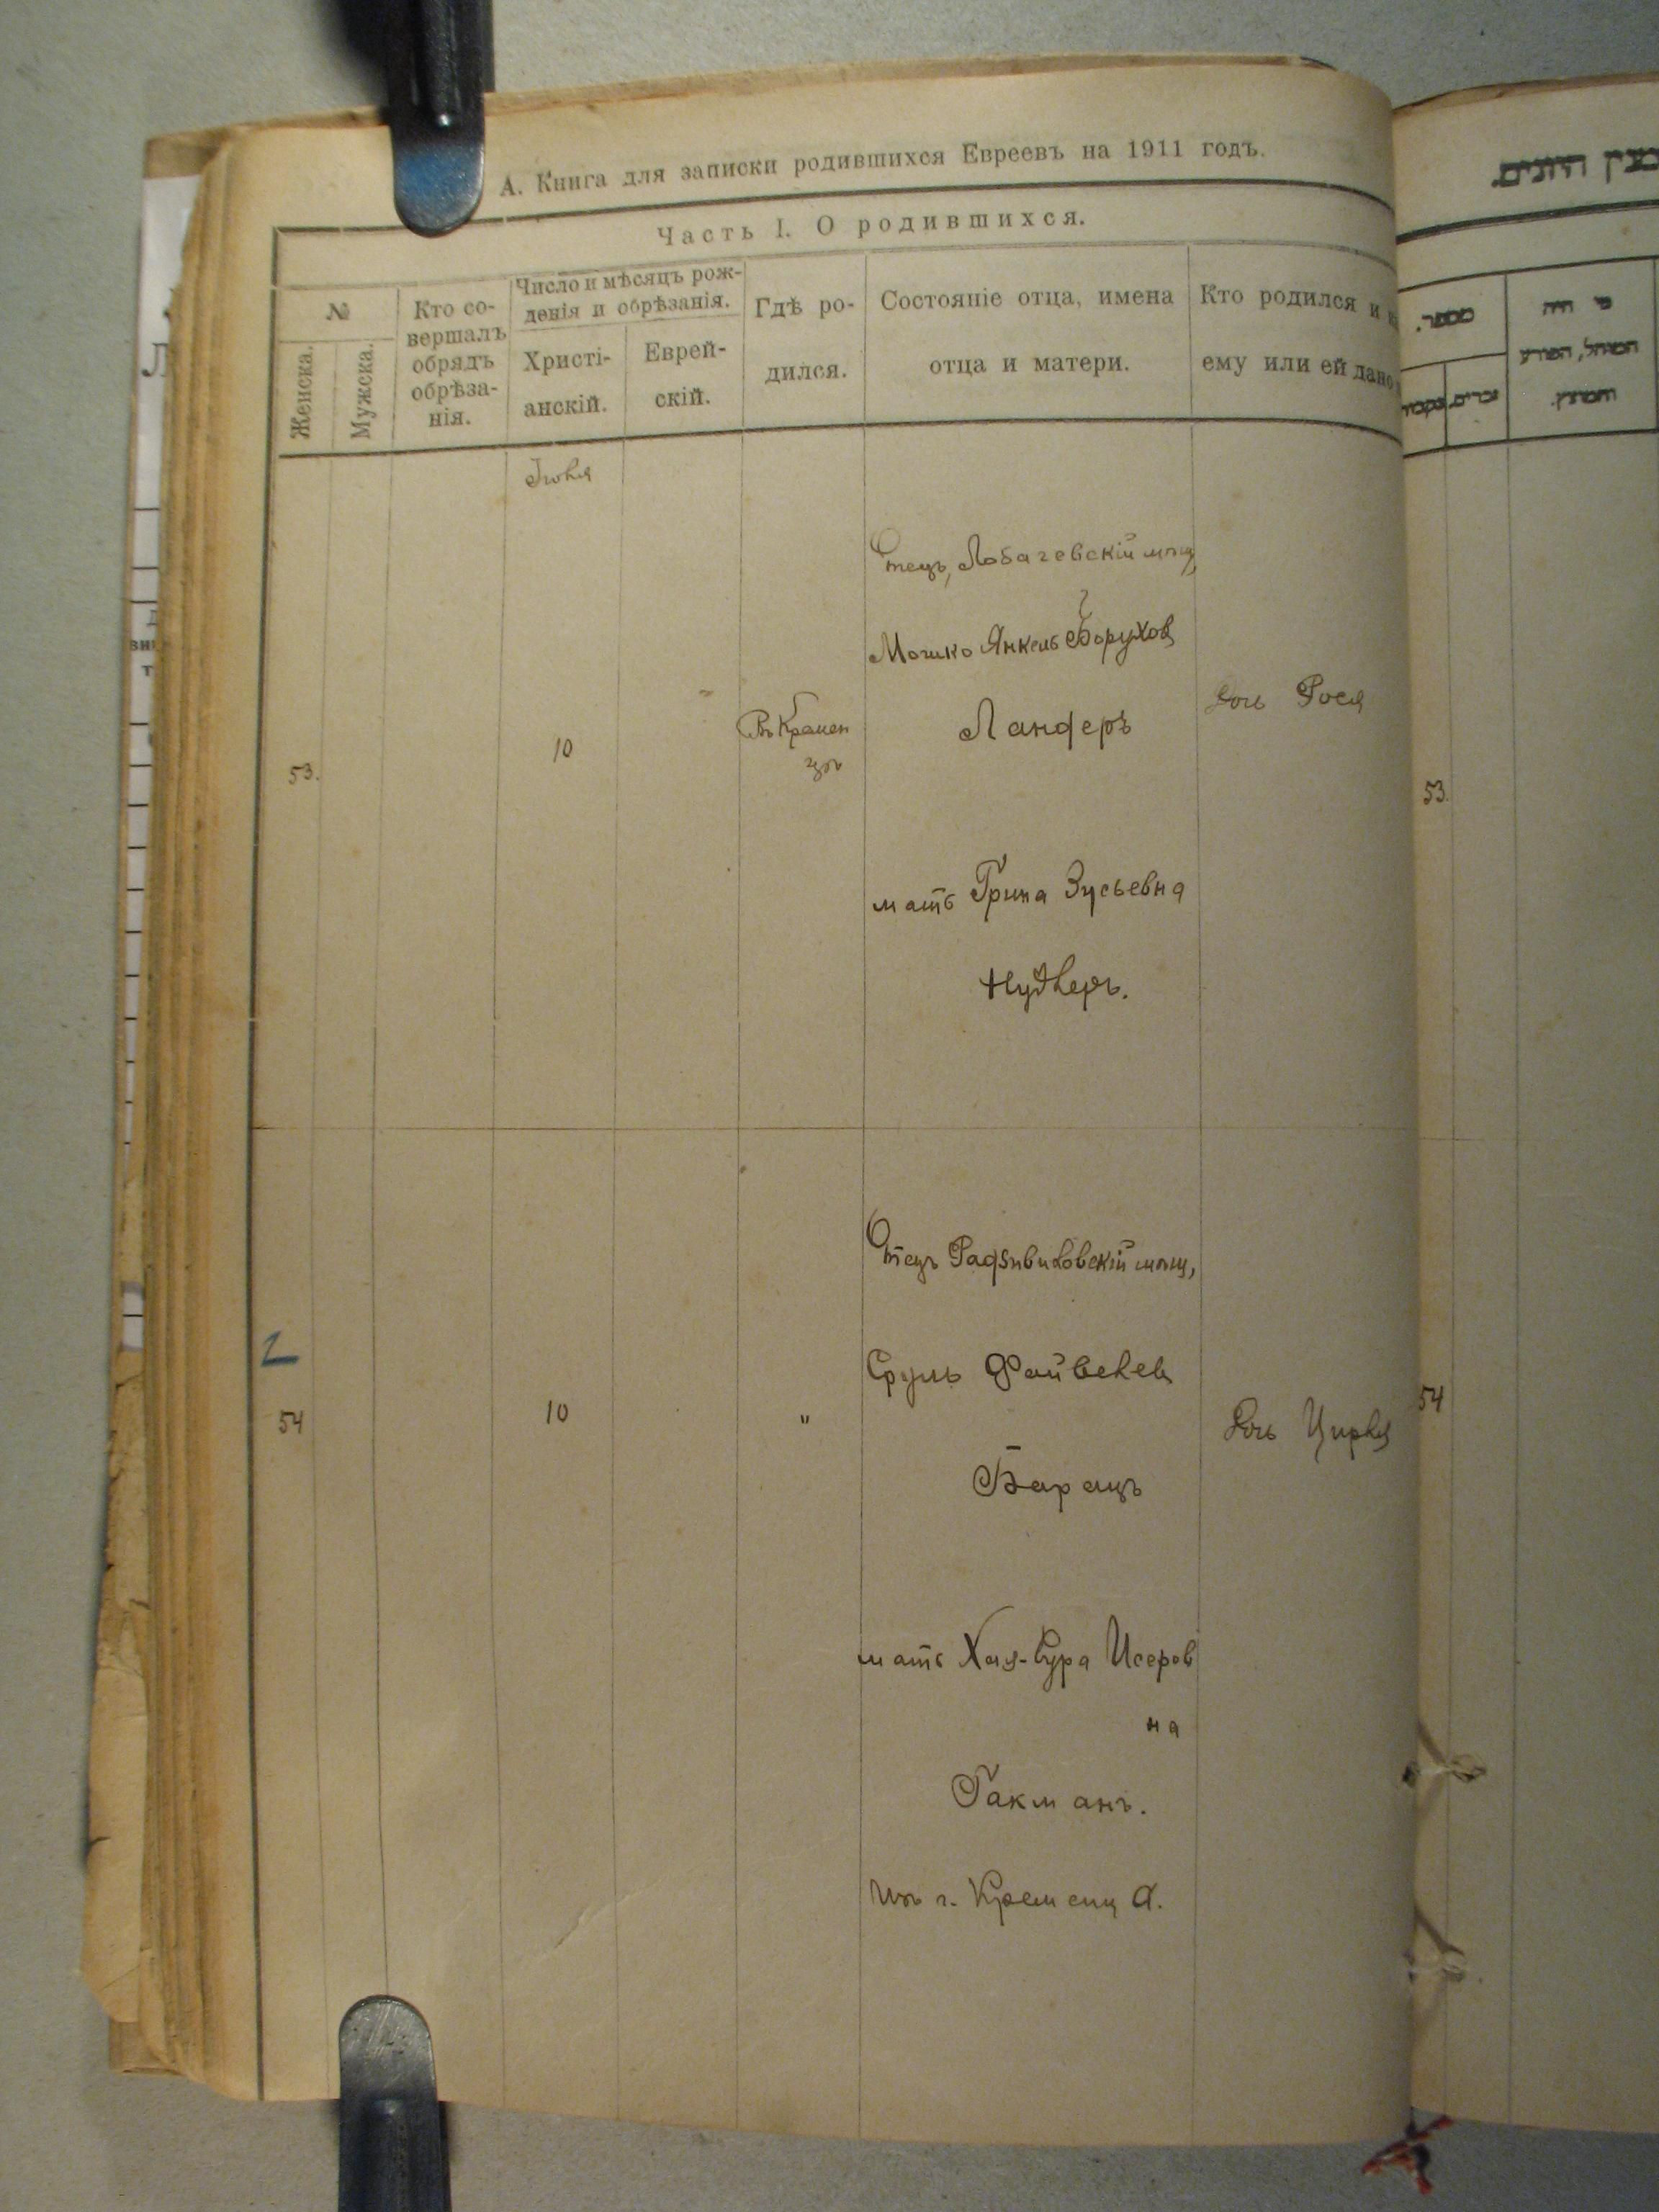 А. Книга для записки родившихся Евреевъ на 1911 годъ.
Часть I. О родившихся.
№
Женска.
Мужска.
Кто со-
вершалъ
обрядъ
обрѣза-
нія.
Число и мѣсяцъ рож-
денія и обрѣзанія.
Христі-
анскій.
Еврей-
скій.
Гдѣ ро-
дился.
Состояніе отца, имена
отца и матери.
Кто родился и
ему или ей дано
Іюля
53.
10
Въ Кремен
цѣ
Отецъ, Лобачевскій мѣщ
Мошко Янкель Борухов
Ландеръ
мать Брина Зусьевна
Нудлеръ.
Дочь Рося
54
10
"
Отецъ Радзивиловскій мѣщ,
Сруль Файвелев
Барацъ
мать Хая-Сура Исеров
на
Гакманъ.
Изъ г. Кременца.
Дочь Цирля
מספר.
זכרים.
מי היה
המוהל, הפורע
והמוצץ.
53.
54